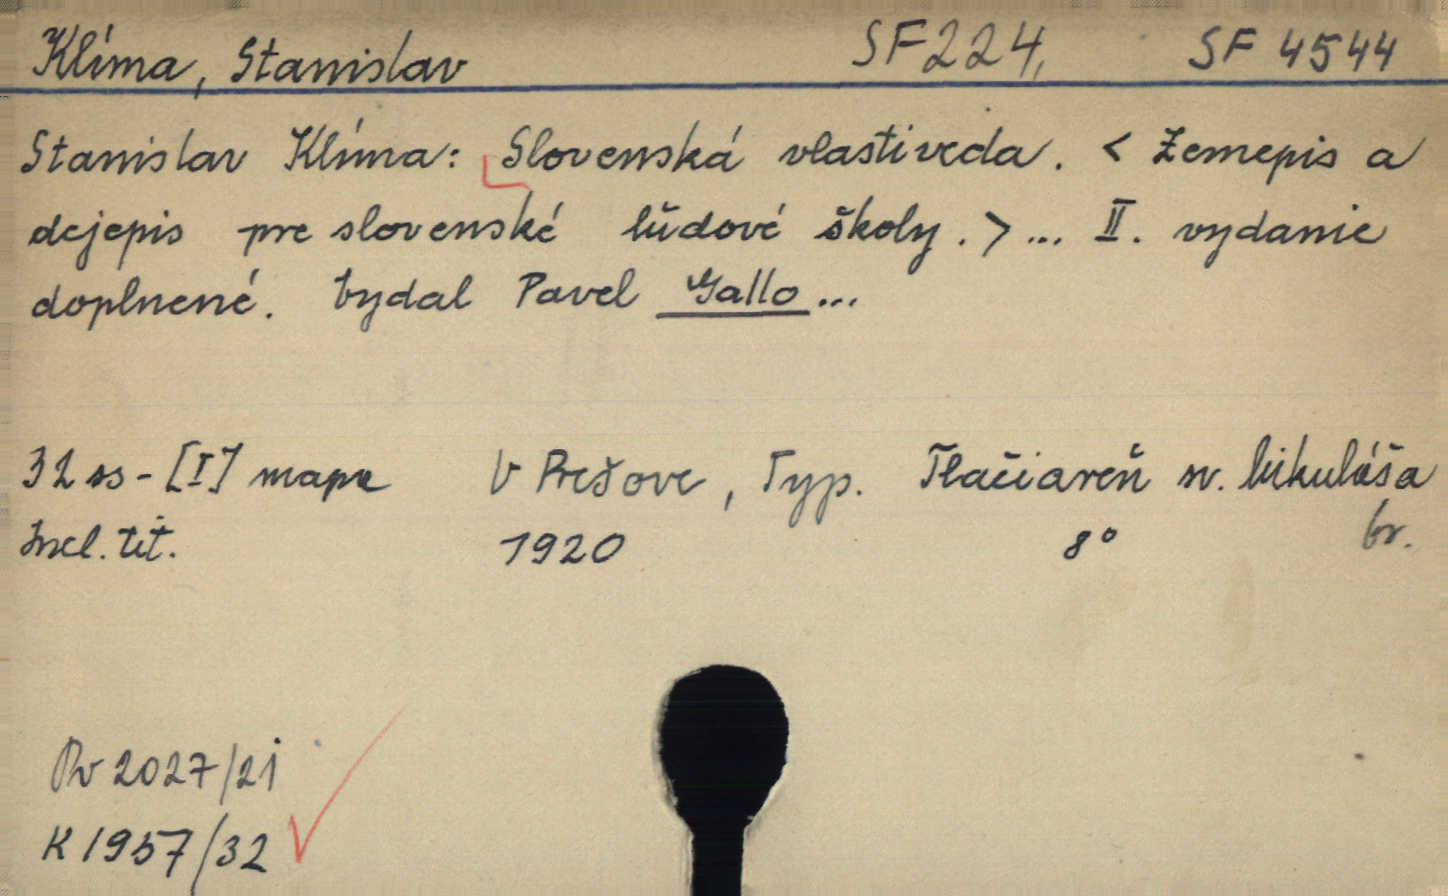 Klíma, Stanislav SF 224, SF 4544
Stanislav Klíma: Slovenská vlastiveda. < Zemepis a
dejepis pre slovenské ľudové školy. > ... II. vydanie
doplnené. Vydal Pavel Gallo ...
32 ss - [I] mapa V Prešove, Typ. Tlačiareň sv. Mikuláša
Incl. tit. 1920 8° br.
Pv 2027/21
K 1957/32